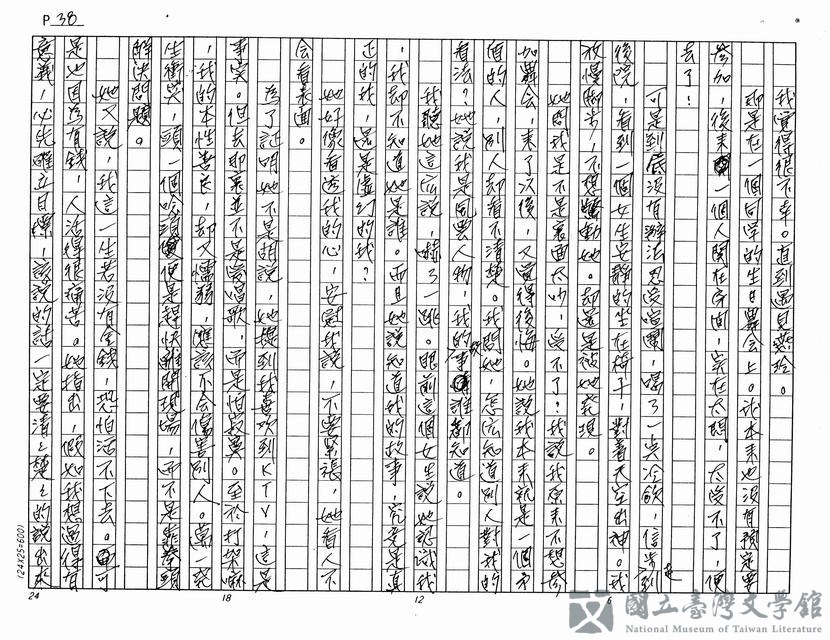 P 38
我覺得很不幸。直到遇見燕玲。
那是在一個同學的生日舞會上。我本來也沒有預定要
參加,後來一個人関在房间,实在太悶,太受不了,便
去了!
可是到底沒有辦法忍受喧鬧,喝了一些冷飲,信步走到
後院,看到一個女生安靜的坐在椅子,對著天空出神。我
放慢脚步,不想驚動她。却還是被她发現。
她問我是不是裏面太吵,受不了?我說我原来不想參
加舞会,来了以後,又覺得後悔。她說我本来就是一個矛
盾的人,別人却看不清楚。我問她,怎麼知道別人對我的
看法?她說我是風雲人物,我的事誰都知道。
我聽她這麼說,嚇了一跳。眼前這個女生說她認識我
,我却不知道她是誰。而且她說知道我的故事,究竟是真
正的我,還是虛幻的我?
她好像看透我的心,安慰我說,不要緊張,她看人不
会看表面。
為了証明她不是胡說,她提到我喜欢到KTV,這是
事实。但去那裏並不是爱唱歌,而是怕寂寞。至於打架嘛
,我的本性善良,却又懦弱,應該不会傷害別人。萬一发
生衝突,頭一個唸頭便是趕快離開現場,而不是靠拳頭
解決問題。
她又說,我這一生若沒有金錢,恐怕活不下去。可
是也因為有錢,人活得很痛苦。她指出,假如我想過得有
意義,必先確立目標,該說的話一定要清清楚楚的說出来
24
18
12
6
(24X25=600)
國立臺灣文學館
National Museum of Taiwan Literature